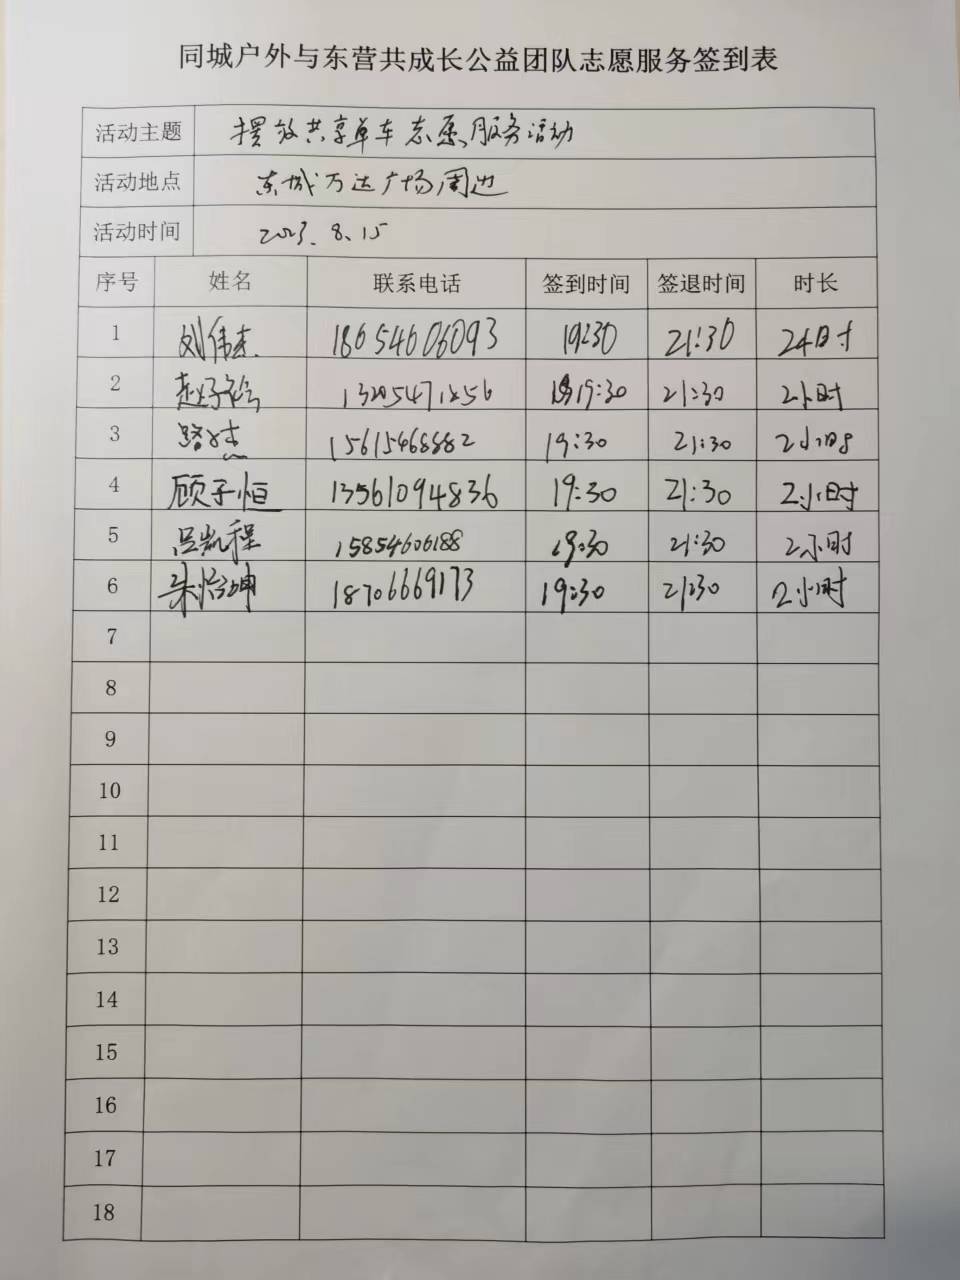 同城户外与东营共成长公益团队志愿服务签到表
活动主题 摆放共享单车志愿服务活动
活动地点 东城万达广场周边
活动时间 2023.8.15
序号 姓名 联系电话 签到时间 签退时间 时长
1 刘伟杰 18654606093 19:30 21:30 2小时
2 赵子 19:30 21:30 2小时
3 路杰 15615468882 19:30 21:30 2小时
4 顾子恒 13561094836 19:30 21:30 2小时
5 吕凯程 15854606188 19:30 21:30 2小时
6 朱怡坤 18706669173 19:30 21:30 2小时
7
8
9
10
11
12
13
14
15
16
17
18